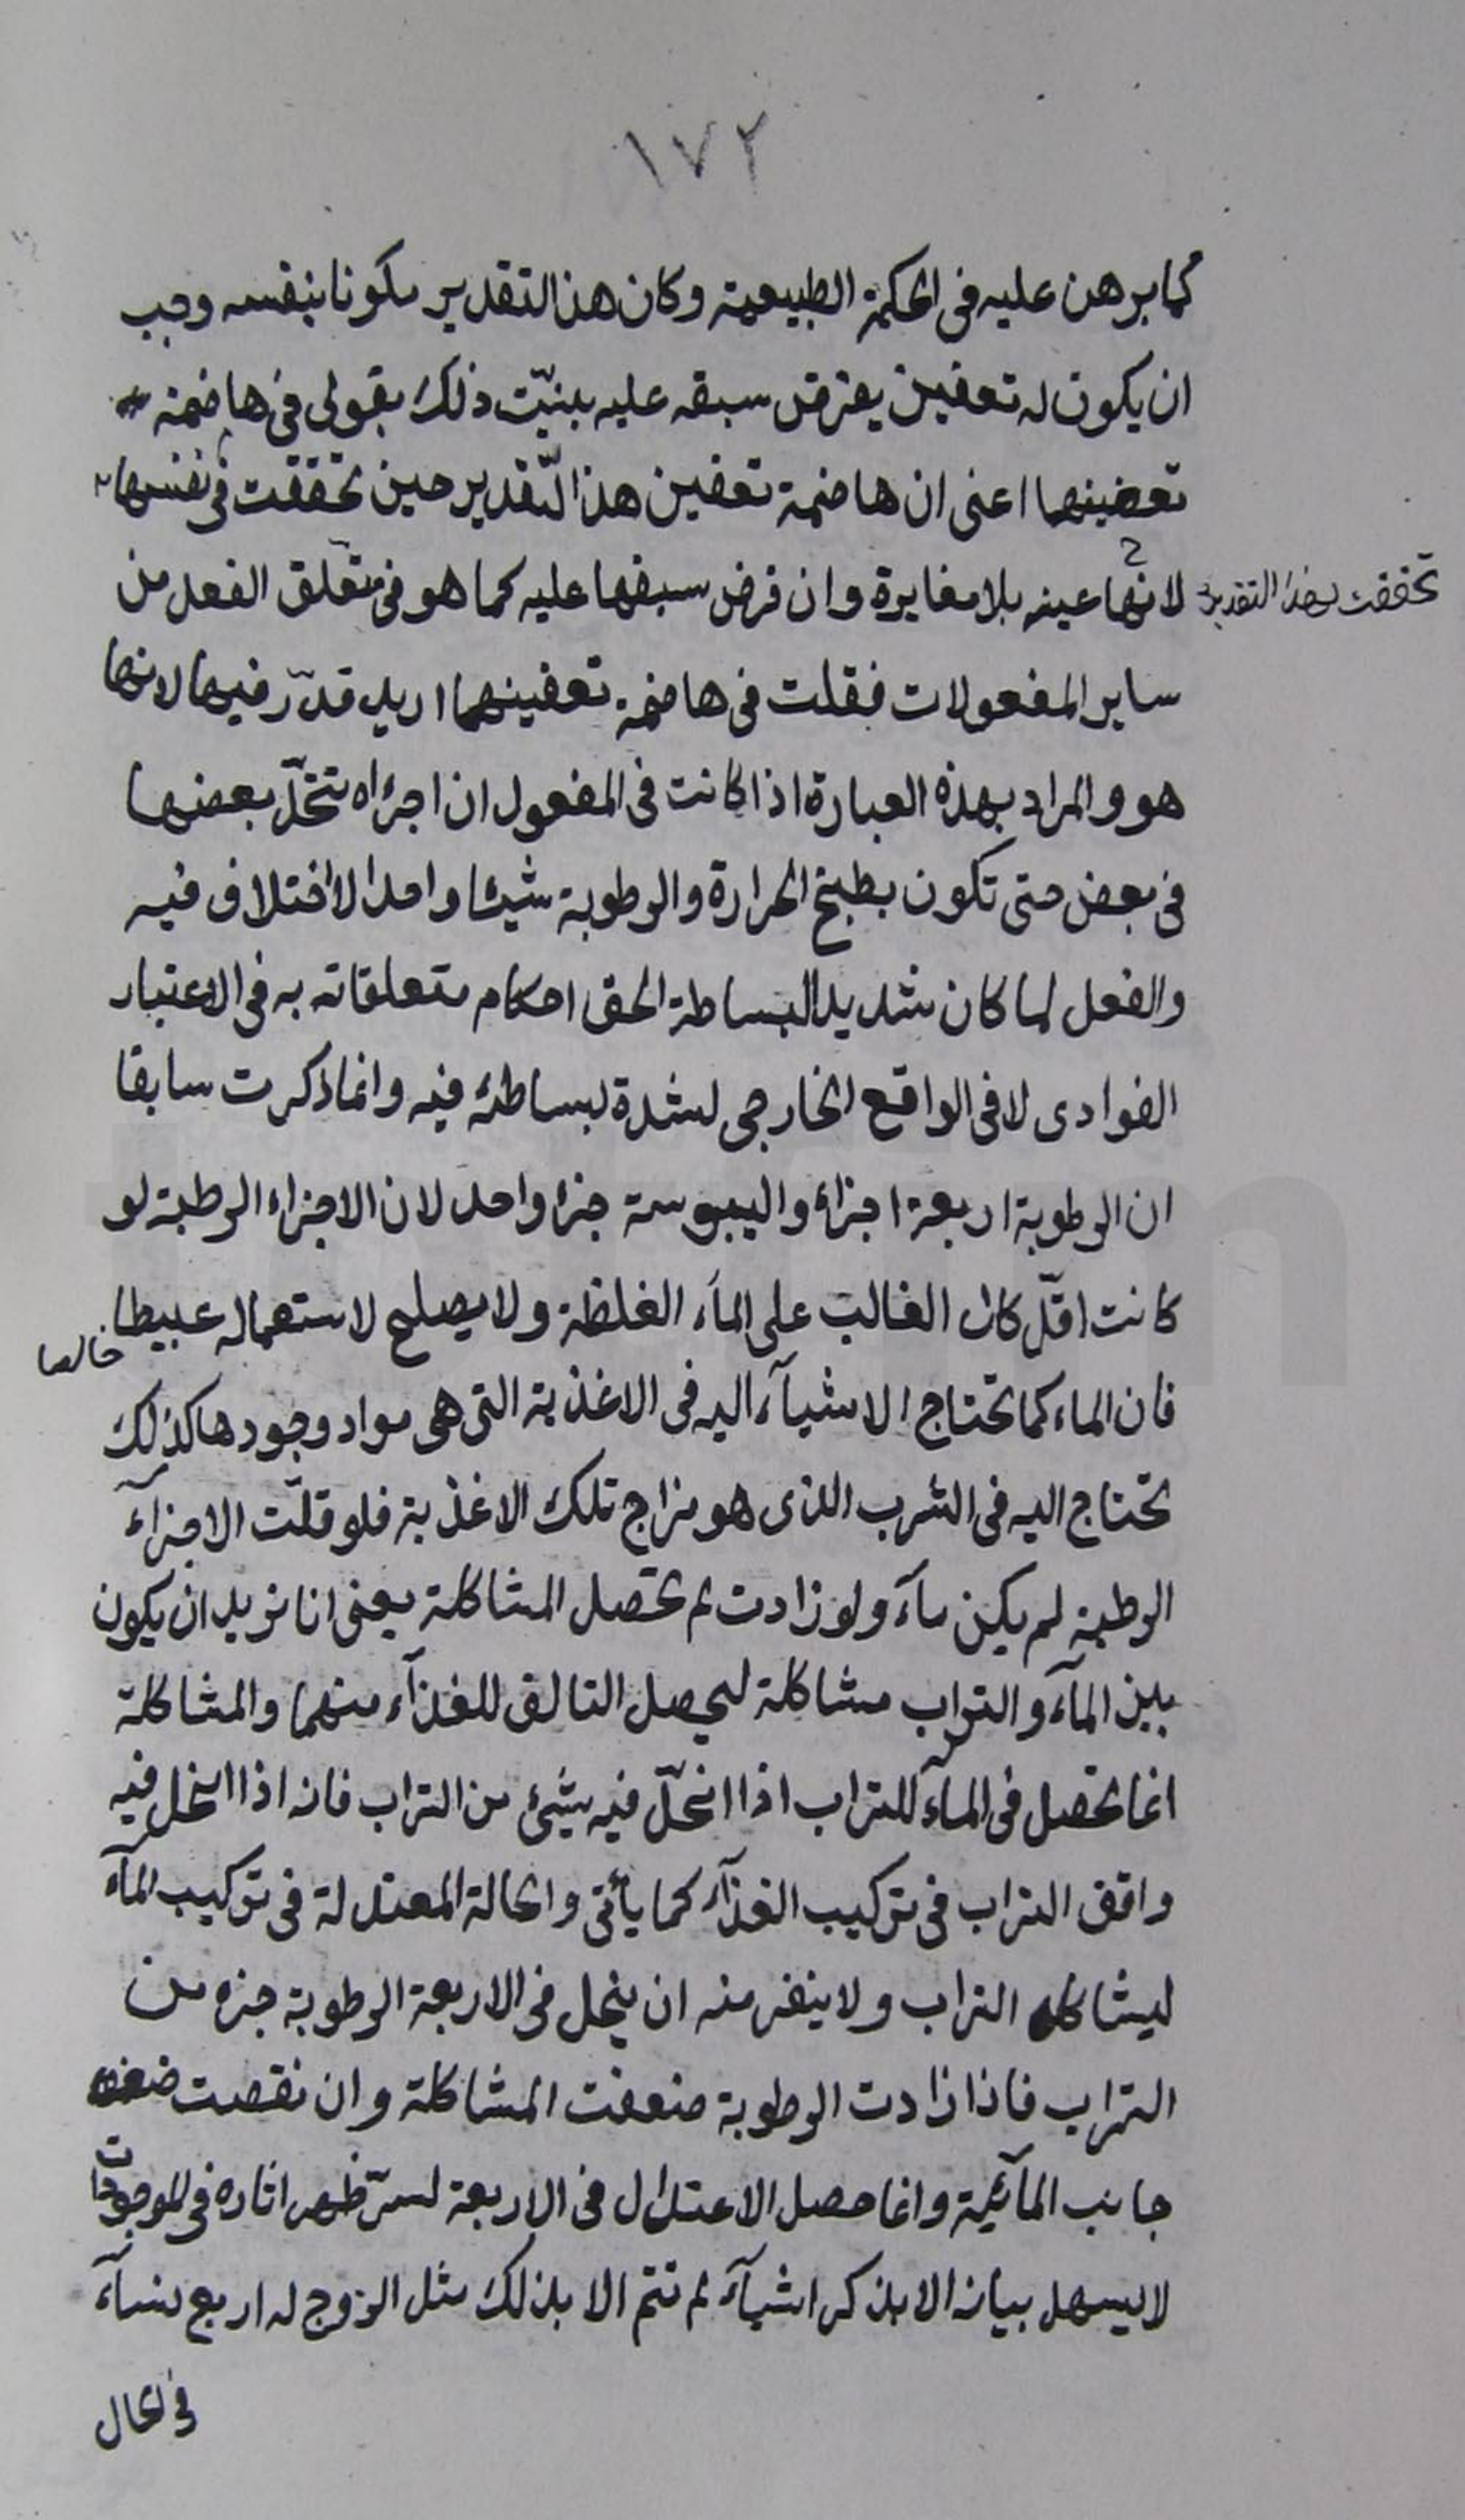 ١٧٢
كما برهن عليه فى الحكمة الطبيعية وكان هذا التقدير مكونا بنفسه وجب
ان يكون له تعفين يفرض سبقه عليه بينت ذلك بقولى فى هاضمة
تعفينهما اعنى ان هاضمة تعفين هذا التّقدير حين تحققت فى نفسها
تحققت بهذا التقدير
لانها عينه بلا مغايرة وان فرض سبقها عليه كما هو فى متعلّق الفعل من
ساير المفعولات فقلت فى هاضمة تعفينهما اريد قدّر فيها لانها
هو والمراد بهذه العبارة اذا كانت فى المفعول ان اجزاه تنحلّ بعضها
فى بعض حتى تكون بطبخ الحرارة والرطوبة شيئا واحدا لا اختلاف فيه
والفعل لما كان شديد البساطة الحق احكام متعلقاته به فى الاعتبار
الفوادى لا فى الواقع الخارجى لشدة بساطته فيه وانما ذكرت سابقا
ان الرطوبة اربعة اجزاء واليبوسة جزء واحد لان الاجزاء الرطبة لو
كانت اقلّ كان الغالب على الماء الغلظة ولا يصلح لاستعماله عبيطا
خالصا
فان الماء كما تحتاج الاشيآء اليه فى الاغذية التى هى مواد وجودها كذلك
تحتاج اليه فى الشرب الذى هو مزاج تلك الاغذية فلو قلّت الاجزآء
الرطبة لم يكن مآء ولو زادت لم تحصل المشاكلة يعنى انا نريد ان يكون
بين المآء والتراب مشاكلة ليحصل التالف للغذآء منهما والمشاكلة
انما تحصل فى المآء للتراب اذا انحلّ فيه شيئ من التراب فانه اذا انحل فيه
وافق التراب فى تركيب الغذآء كما يأتى والحالة المعتدلة فى تركيب المآء
ليشاكله التراب ولا ينفر منه ان ينحل فى الاربعة الرطوبة جزء من
التراب فاذا زادت الرطوبة ضعفت المشاكلة وان نقصت ضعف
جانب المآئية وانما حصل الاعتدال فى الاربعة لسرّ ظهر اثاره فى الموجودات
لا يسهل بيانه الا بذكر اشيآء لم تتم الا بذلك مثل الزوج له اربع نسآء
فى الحال